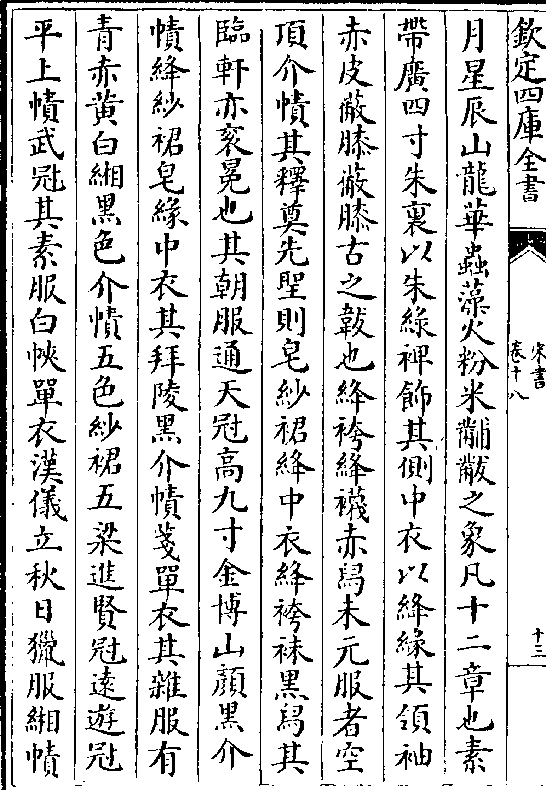 欽定四庫全書
宋書
卷十八
十三
月星辰山龍華蟲藻火粉米黼黻之象凡十二章也素
帶廣四寸朱裏以朱緣裨飾其側中衣以絳緣其領袖
赤皮蔽膝蔽膝古之韍也絳袴絳襪赤舄未元服者空
頂介幘其釋奠先聖則皂紗裙絳中衣絳袴袜黑舄其
臨軒亦衮冕也其朝服通天冠高九寸金博山顏黑介
幘絳紗裙皂緣中衣其拜陵黑介幘䇳單衣其雜服有
青赤黄白緗黑色介幘五色紗裙五梁進賢冠遠遊冠
平上幘武冠其素服白帢單衣漢儀立秋日獵服緗幘